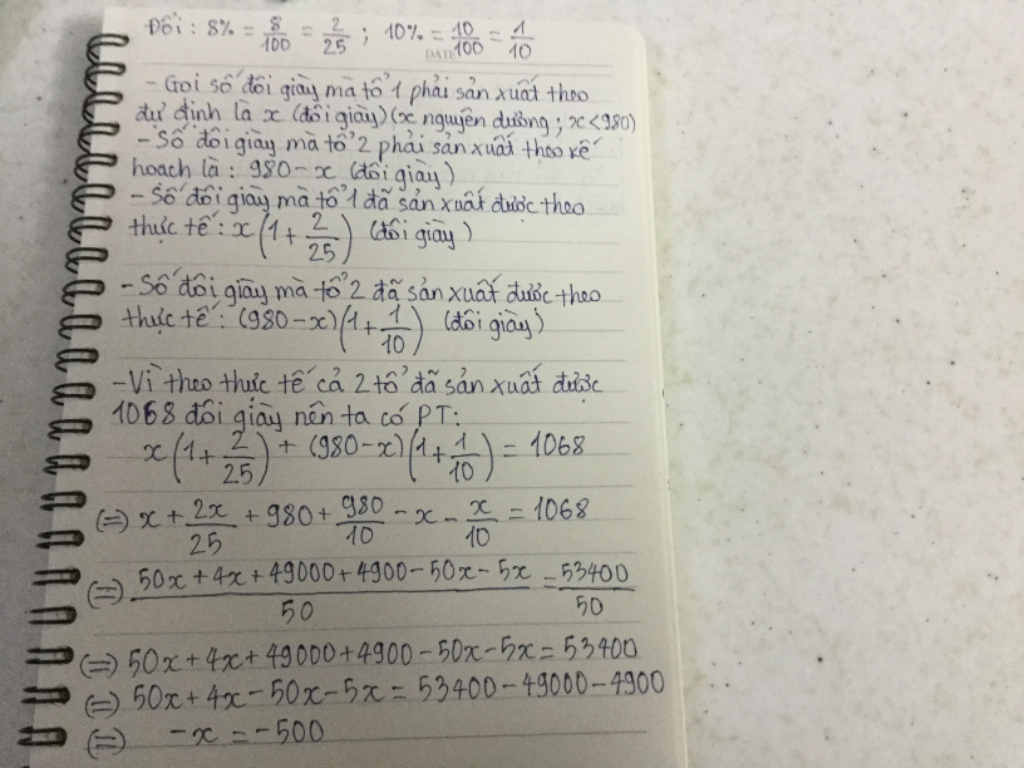 Đổi : 8% = 8/100 = 2/25 ; 10% = 10/100 = 1/10
DATE
- Gọi số đôi giày mà tổ 1 phải sản xuất theo
dự định là x (đôi giày)(x nguyên dương ; x < 980)
- Số đôi giày mà tổ 2 phải sản xuất theo kế
hoạch là : 980 - x (đôi giày)
- Số đôi giày mà tổ 1 đã sản xuất được theo
thực tế : x(1 + 2/25) (đôi giày)
- Số đôi giày mà tổ 2 đã sản xuất được theo
thực tế : (980 - x)(1 + 1/10) (đôi giày)
- Vì theo thực tế cả 2 tổ đã sản xuất được
1068 đôi giày nên ta có PT:
x(1 + 2/25) + (980 - x)(1 + 1/10) = 1068
(=) x + 2x/25 + 980 + 980/10 - x - x/10 = 1068
(=) (50x + 4x + 49000 + 4900 - 50x - 5x)/50 = 53400/50
(=) 50x + 4x + 49000 + 4900 - 50x - 5x = 53400
(=) 50x + 4x - 50x - 5x = 53400 - 49000 - 4900
(=) -x = -500